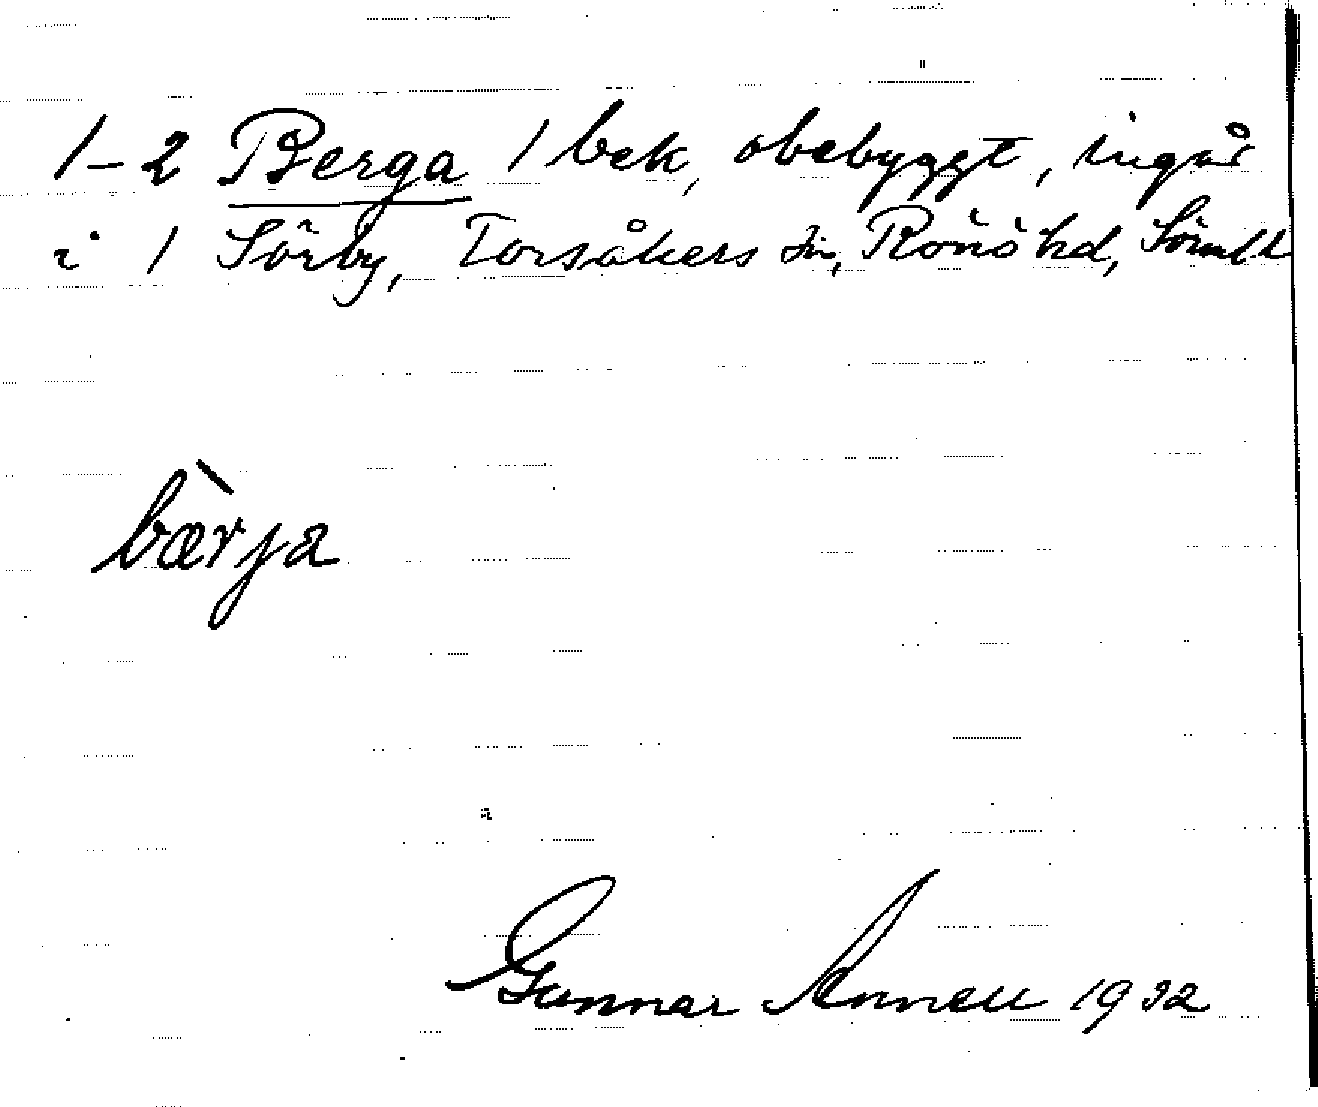 1-2 Berga 1 bek, obebyggt, ingår
i 1 Sörby, Torsåkers sn, Rönö hd, Sörmld
bæ̀rja
Gunnar Annell 1932